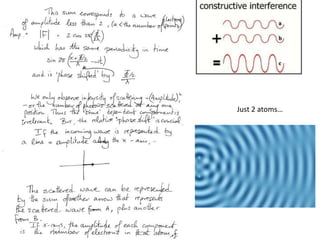 This sum corresponds to a wave
of amplitude less than 2, (2 < the number of points)
(factors)
Amp = |F| = 2 cos 2π(
which has the same periodicity in time
sin 2π(
and is 'phase shifted' by
We only observe intensity of scattering = (Amplitude)²
- or the number of photons scattered at any one
position. Thus the time dependent component is
irrelevant. But, the relative 'phase shift' is crucial
If the incoming wave is represented by
a line = amplitude along the x-axis,
The scattered wave can be represented
by the sum of another arrow that represents
the scattered wave from A, plus another
from B.
If x-rays, the amplitude of each component
is the number of electrons in that atom
constructive interference
a
b
c
Just 2 atoms…